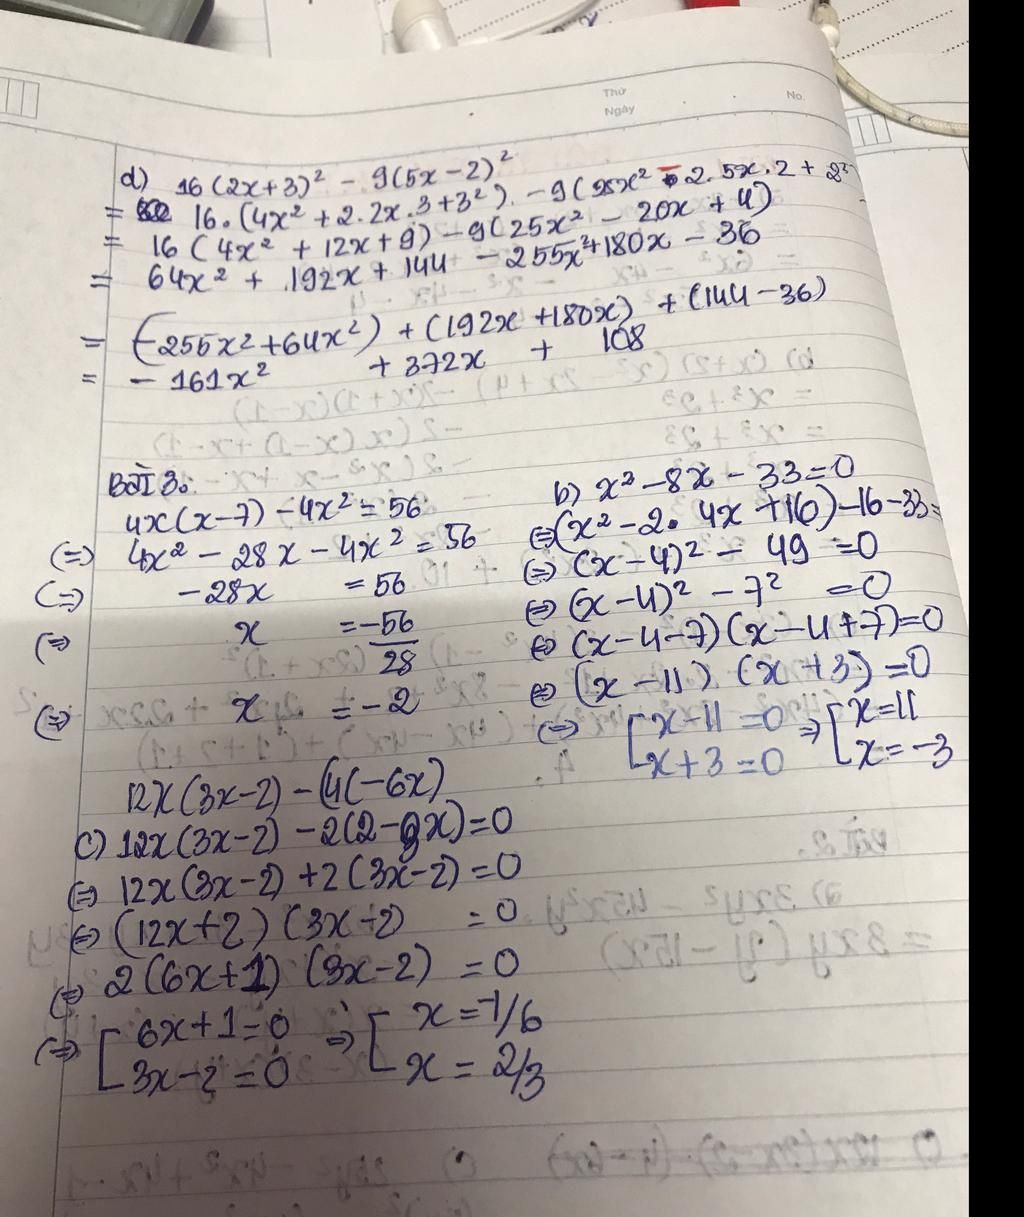 Thứ
Ngày
No.
d) 16(2x+3)² - 9(5x-2)²
= 16.(4x² + 2.2x.3+3²) - 9(25x² - 2.5x.2 + 2²
= 16(4x² + 12x+9) - 9(25x² - 20x + 4)
= 64x² + 192x + 144 - 255x²+180x - 36
= (-255x²+64x²) + (192x +180x) + (144-36)
= - 161x² + 372x + 108
BÀI 3:
4x(x-7) - 4x² = 56
(=) 4x² - 28x - 4x² = 56
(=) -28x = 56
(=) x = -56/28
(=) x = -2
b) x² - 8x - 33 = 0
(=) (x² - 2. 4x + 16) - 16 - 33 =
(=) (x-4)² - 49 = 0
(=) (x-4)² - 7² = 0
(=) (x-4-7)(x-4+7)=0
(=) (x-11) (x+3) = 0
(=) [x-11 = 0 => [x=11
x+3 = 0 x=-3
12x(3x-2) - (4(-6x)
c) 12x(3x-2) - 2(2-3x) = 0
(=) 12x(3x-2) + 2(3x-2) = 0
(=) (12x+2) (3x-2) = 0
(=) 2(6x+1) (3x-2) = 0
(=) [6x+1=0 => [x = -1/6
3x-2=0 x = 2/3